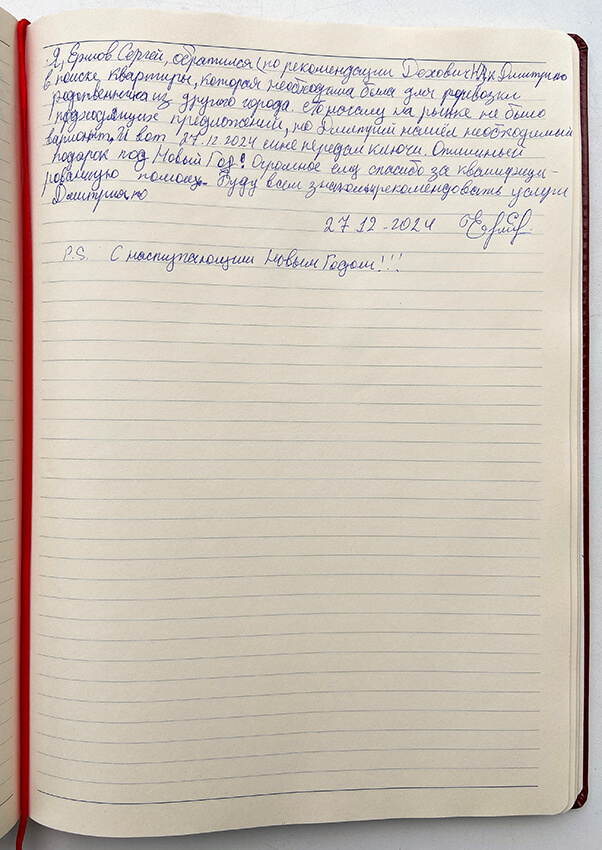 Я, Ермов Сергей, обратился (по рекомендации Дехович Н.А) к Дмитрию
в поиске квартиры, которая необходима была для перевозки
родственника из другого города. По
подходящих предложений, но Дмитрий нашёл необходимый
вариант. И вот 27.12.2024 мне передал ключи. Отличный
подарок под Новый Год! Огромное ему спасибо за квалифици-
рованную помощь. Буду всем знакомым рекомендовать услуги
Дмитрия
27.12.2024
P.S. С наступающим Новым Годом!!!